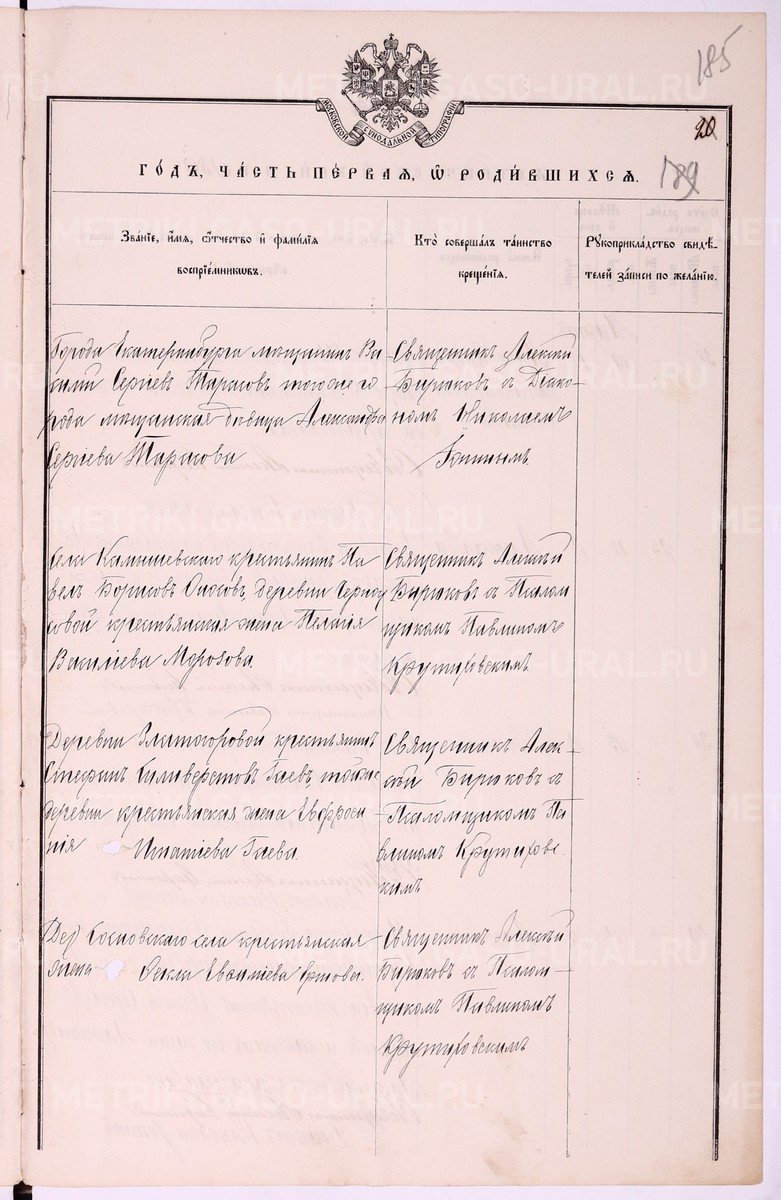 185
МОСКОВСКОЙ СѴНОДАЛЬНОЙ ТИПОГРАФІИ
20
189
ГО́ДЪ, ЧА́СТЬ ПЕ́РВАЯ, Ѡ҆ РОДИ́ВШИХСЯ.
Зва́нїе, и҆́мя, ѻ҆́тчество и҆ фами́лїя
воспрїе́мникѡвъ.
Кто̀ соверша́лъ та́инство
креще́нїя.
Рꙋкоприкла́дство свидѣ́-
телей за́писи по жела́нїю.
Города Екатеринбурга мѣщанинъ
Сергіевъ Тарасовъ тогоже го
рода мѣщанская дѣвица Александра
Сергіева Тарасова
Священникъ Алексѣй
Бирюковъ съ Діако-
номъ Николаемъ
Села Камышевскаго крестьянинъ Па
велъ Борисовъ деревни Черноу
совой крестьянская жена Пелагія
Василіева Морозова.
Священникъ Алексѣй
Бирюковъ съ Псалом
щикомъ Павлиномъ
Крутиховскимъ
Деревни Златогоровой крестьянинъ
Стефанъ Силиверстовъ Гаевъ, тойже
деревни крестьянская жена Евфроси
нія Игнатіева Гаева.
Священникъ Алек-
сѣй Бирюковъ съ
Псаломщикомъ Па
влиномъ Крутиховс-
кимъ
Сосновскаго села крестьянская
жена Ѳекла
Священникъ Алексѣй
Бирюковъ съ Псалом-
щикомъ Павлиномъ
Крутиховскимъ
METRIKI.GASO-URAL.RU